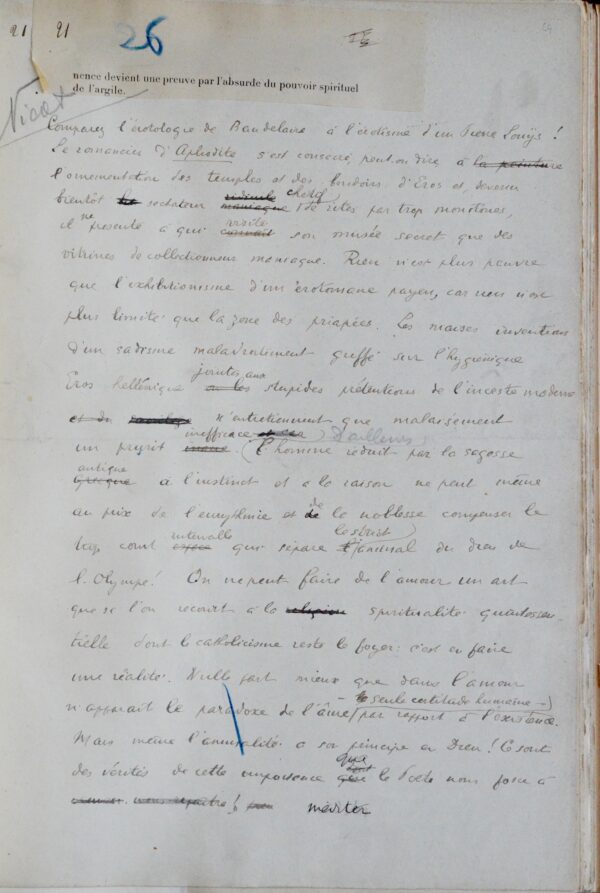 21
21
26
nence devient une preuve par l'absurde du pouvoir spirituel
de l'argile.
Comparez l'érotologie de Baudelaire à l'érotisme d'un Pierre Louÿs !
Le romancier d'Aphrodite s'est consacré, peut-on dire à la peinture
l'ornementation des temples et des boudoirs d'Eros et, devenu
bientôt sectateur chétif de rites par trop monotones,
il ne présente à qui visite son musée secret que des
vitrines de collectionneur maniaque. Rien n'est plus pauvre
que l'exhibitionisme d'un érotomane payen, car rien n'est
plus limité que la zone des priapées. Les niaises inventions
d'un sadisme maladroitement greffé sur l'hygiénique
Eros hellénique jointes aux stupides prétentions de l'inceste moderne
n'entretiennent que malaisément
un prurit inefficace. D'ailleurs
l'homme réduit par la sagesse
antique à l'instinct et à la raison ne peut même
au prix de l'eurythmie et de la noblesse compenser le
trop court intervalle qui sépare l'animal du dieu de
l'Olympe ! On ne peut faire de l'amour un art
que si l'on recourt à la religion spiritualité
tielle dont le catholicisme reste le foyer : c'est en faire
une réalité. Nulle part mieux que dans l'amour
- seule certitude humaine -
n'apparait le paradoxe de l'âme par rapport à l'existence.
Mais même l'animalité a son principe en Dieu ! Ce sont
des vérités de cette importance que le Poète nous force à
méditer